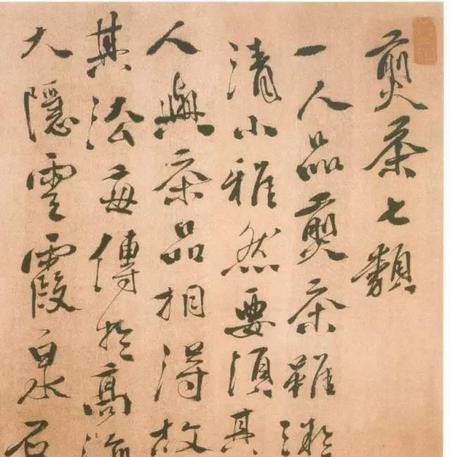 煎茶七類
一人品煎茶雖
清小雅然要須其
人與茶品相得故
其法每傳於高
大隱雲霞泉石